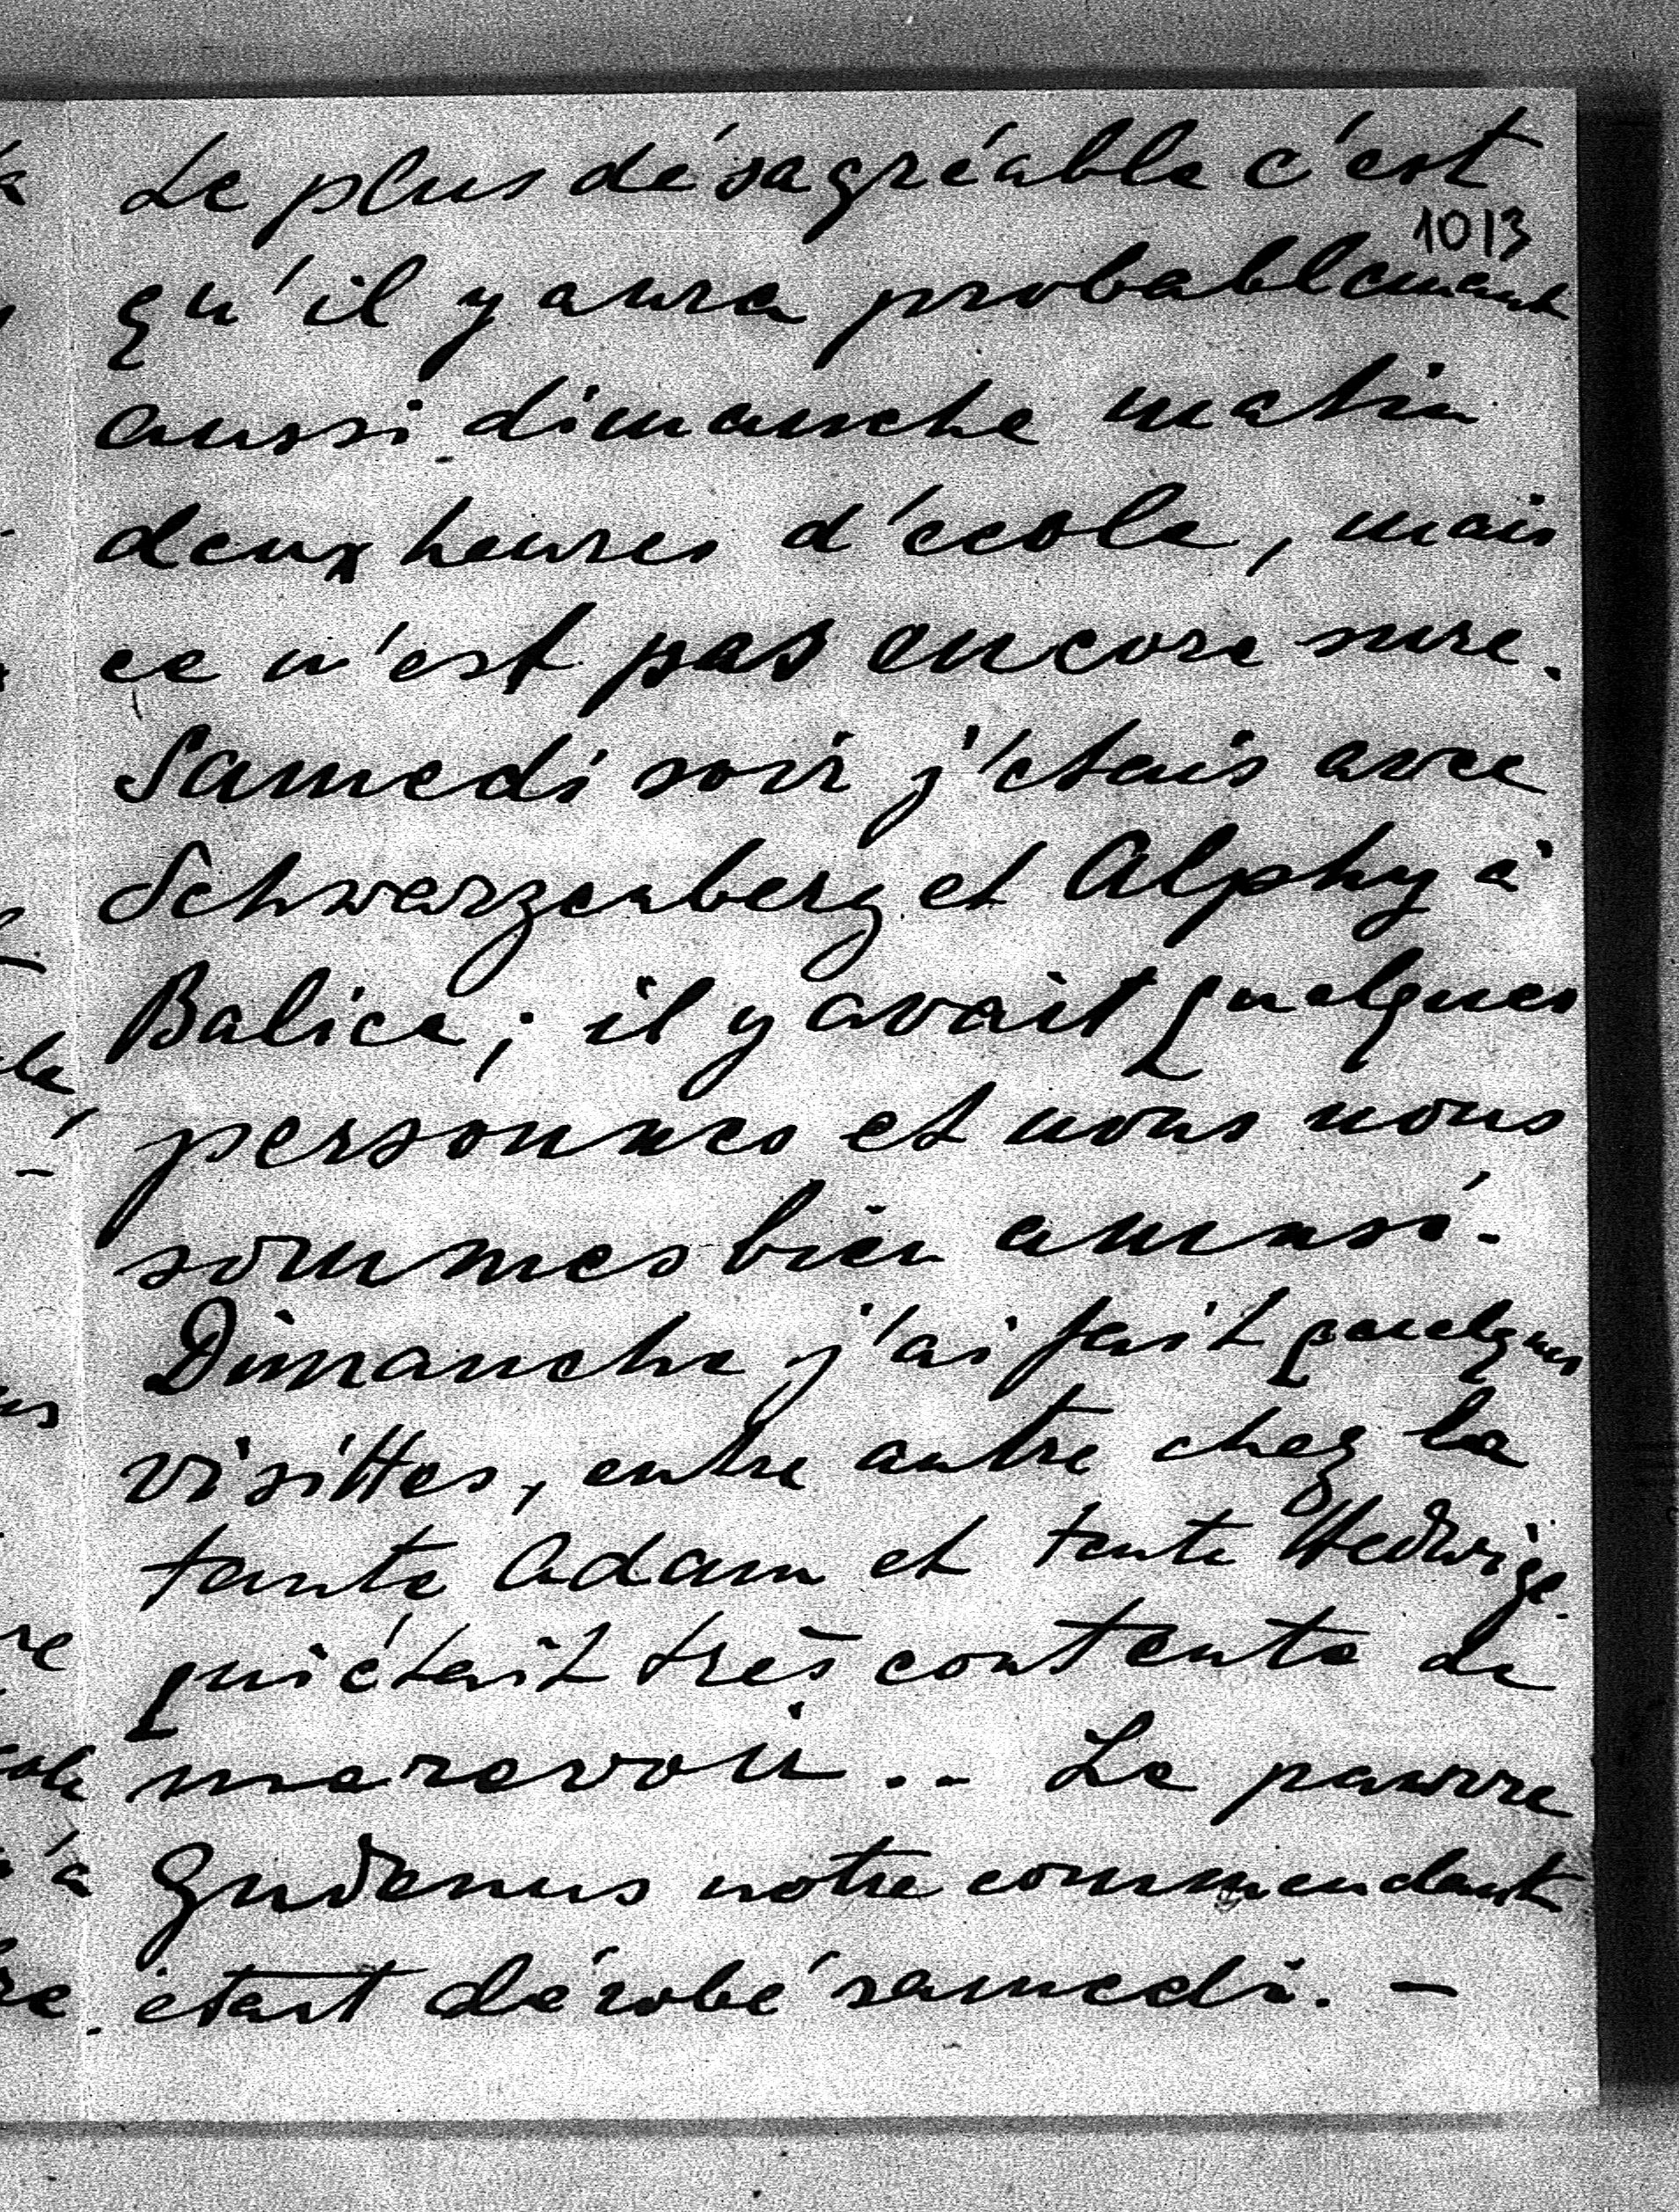 Le plus désagréable c'est
1013
qu'il y aura probablement
aussi dimanche matin
deux heures d'école, mais
ce n'est pas encore sure.
Samedi soir j'étais avec
Schwarzenberg et Alphy à
Balice; il y avait quelques
personnes et nous nous
sommes bien amusé.
Dimanche j'ai fait quelques
visittes, entre autre chez la
tante Adam et tante Hedwige
qui était très contente de
me revoir.. Le pauvre
Gudenus notre commendant
était dérobé samedi. –